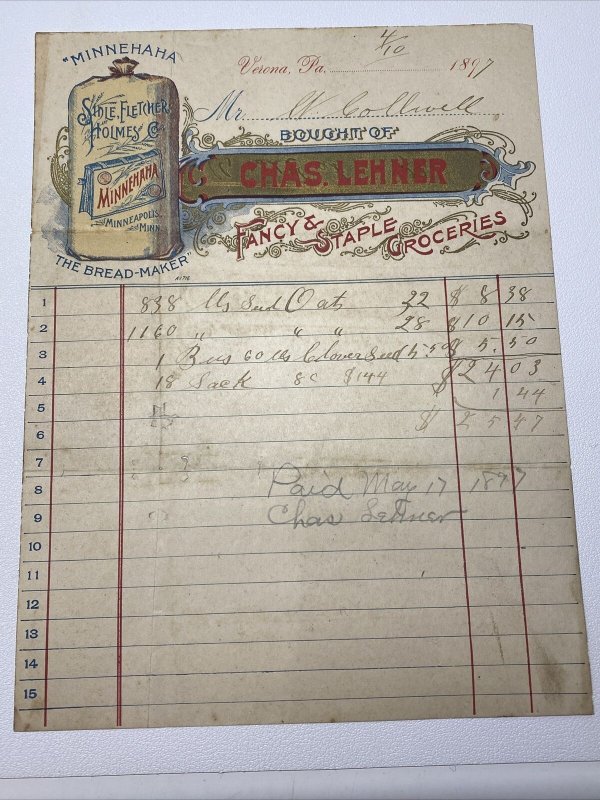 "MINNEHAHA
SIDLE, FLETCHER
HOLMES CO.
MINNEHAHA
MINNEAPOLIS,
MINN.
THE BREAD-MAKER"
Verona, Pa. 4/10 1897
Mr. W Collwell
BOUGHT OF
CHAS. LEHNER
FANCY & STAPLE GROCERIES
1 838 lbs Seed Oats 32 $ 8 38
2 1160 " " " 28 $ 10 15
3 1 Bus 60 lbs Clover Seed 5.50 $ 5.50
4 18 Sack 8c $144 $ 24 03
5 1 44
6 $ 25 47
7
8 Paid May 17 1897
9 Chas Lehner
10
11
12
13
14
15